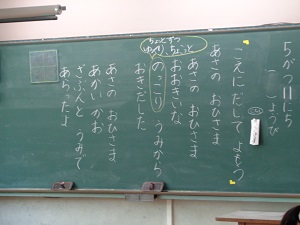 5がつ11にち
( )ようび
こえに だして よもう
あさの おひさま
あさの おひさま
おおきいな
のっこり うみから
おきだした
あさの おひさま
あかい かお
ざぶんと うみで
あらったよ
ちょっとずつ
ゆっくり ちょこっと